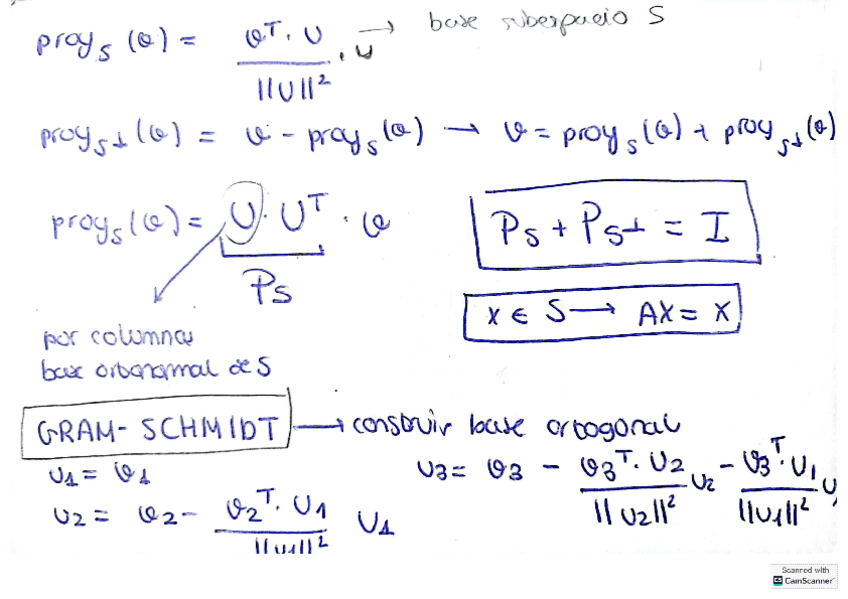 proy_S (v) = v^T · u / ||u||² · u → base subespacio S
proy_S⊥ (v) = v - proy_S (v) → v = proy_S (v) + proy_S⊥ (v)
proy_S (v) = U · U^T · v
P_S
P_S + P_S⊥ = I
x ∈ S → AX = X
por columnas
base ortonormal de S
GRAM-SCHMIDT → construir base ortogonal
u1 = v1
u2 = v2 - v2^T · u1 / ||u1||² u1
u3 = v3 - v3^T · u2 / ||u2||² u2 - v3^T · u1 / ||u1||² u
Scanned with
CS CamScanner